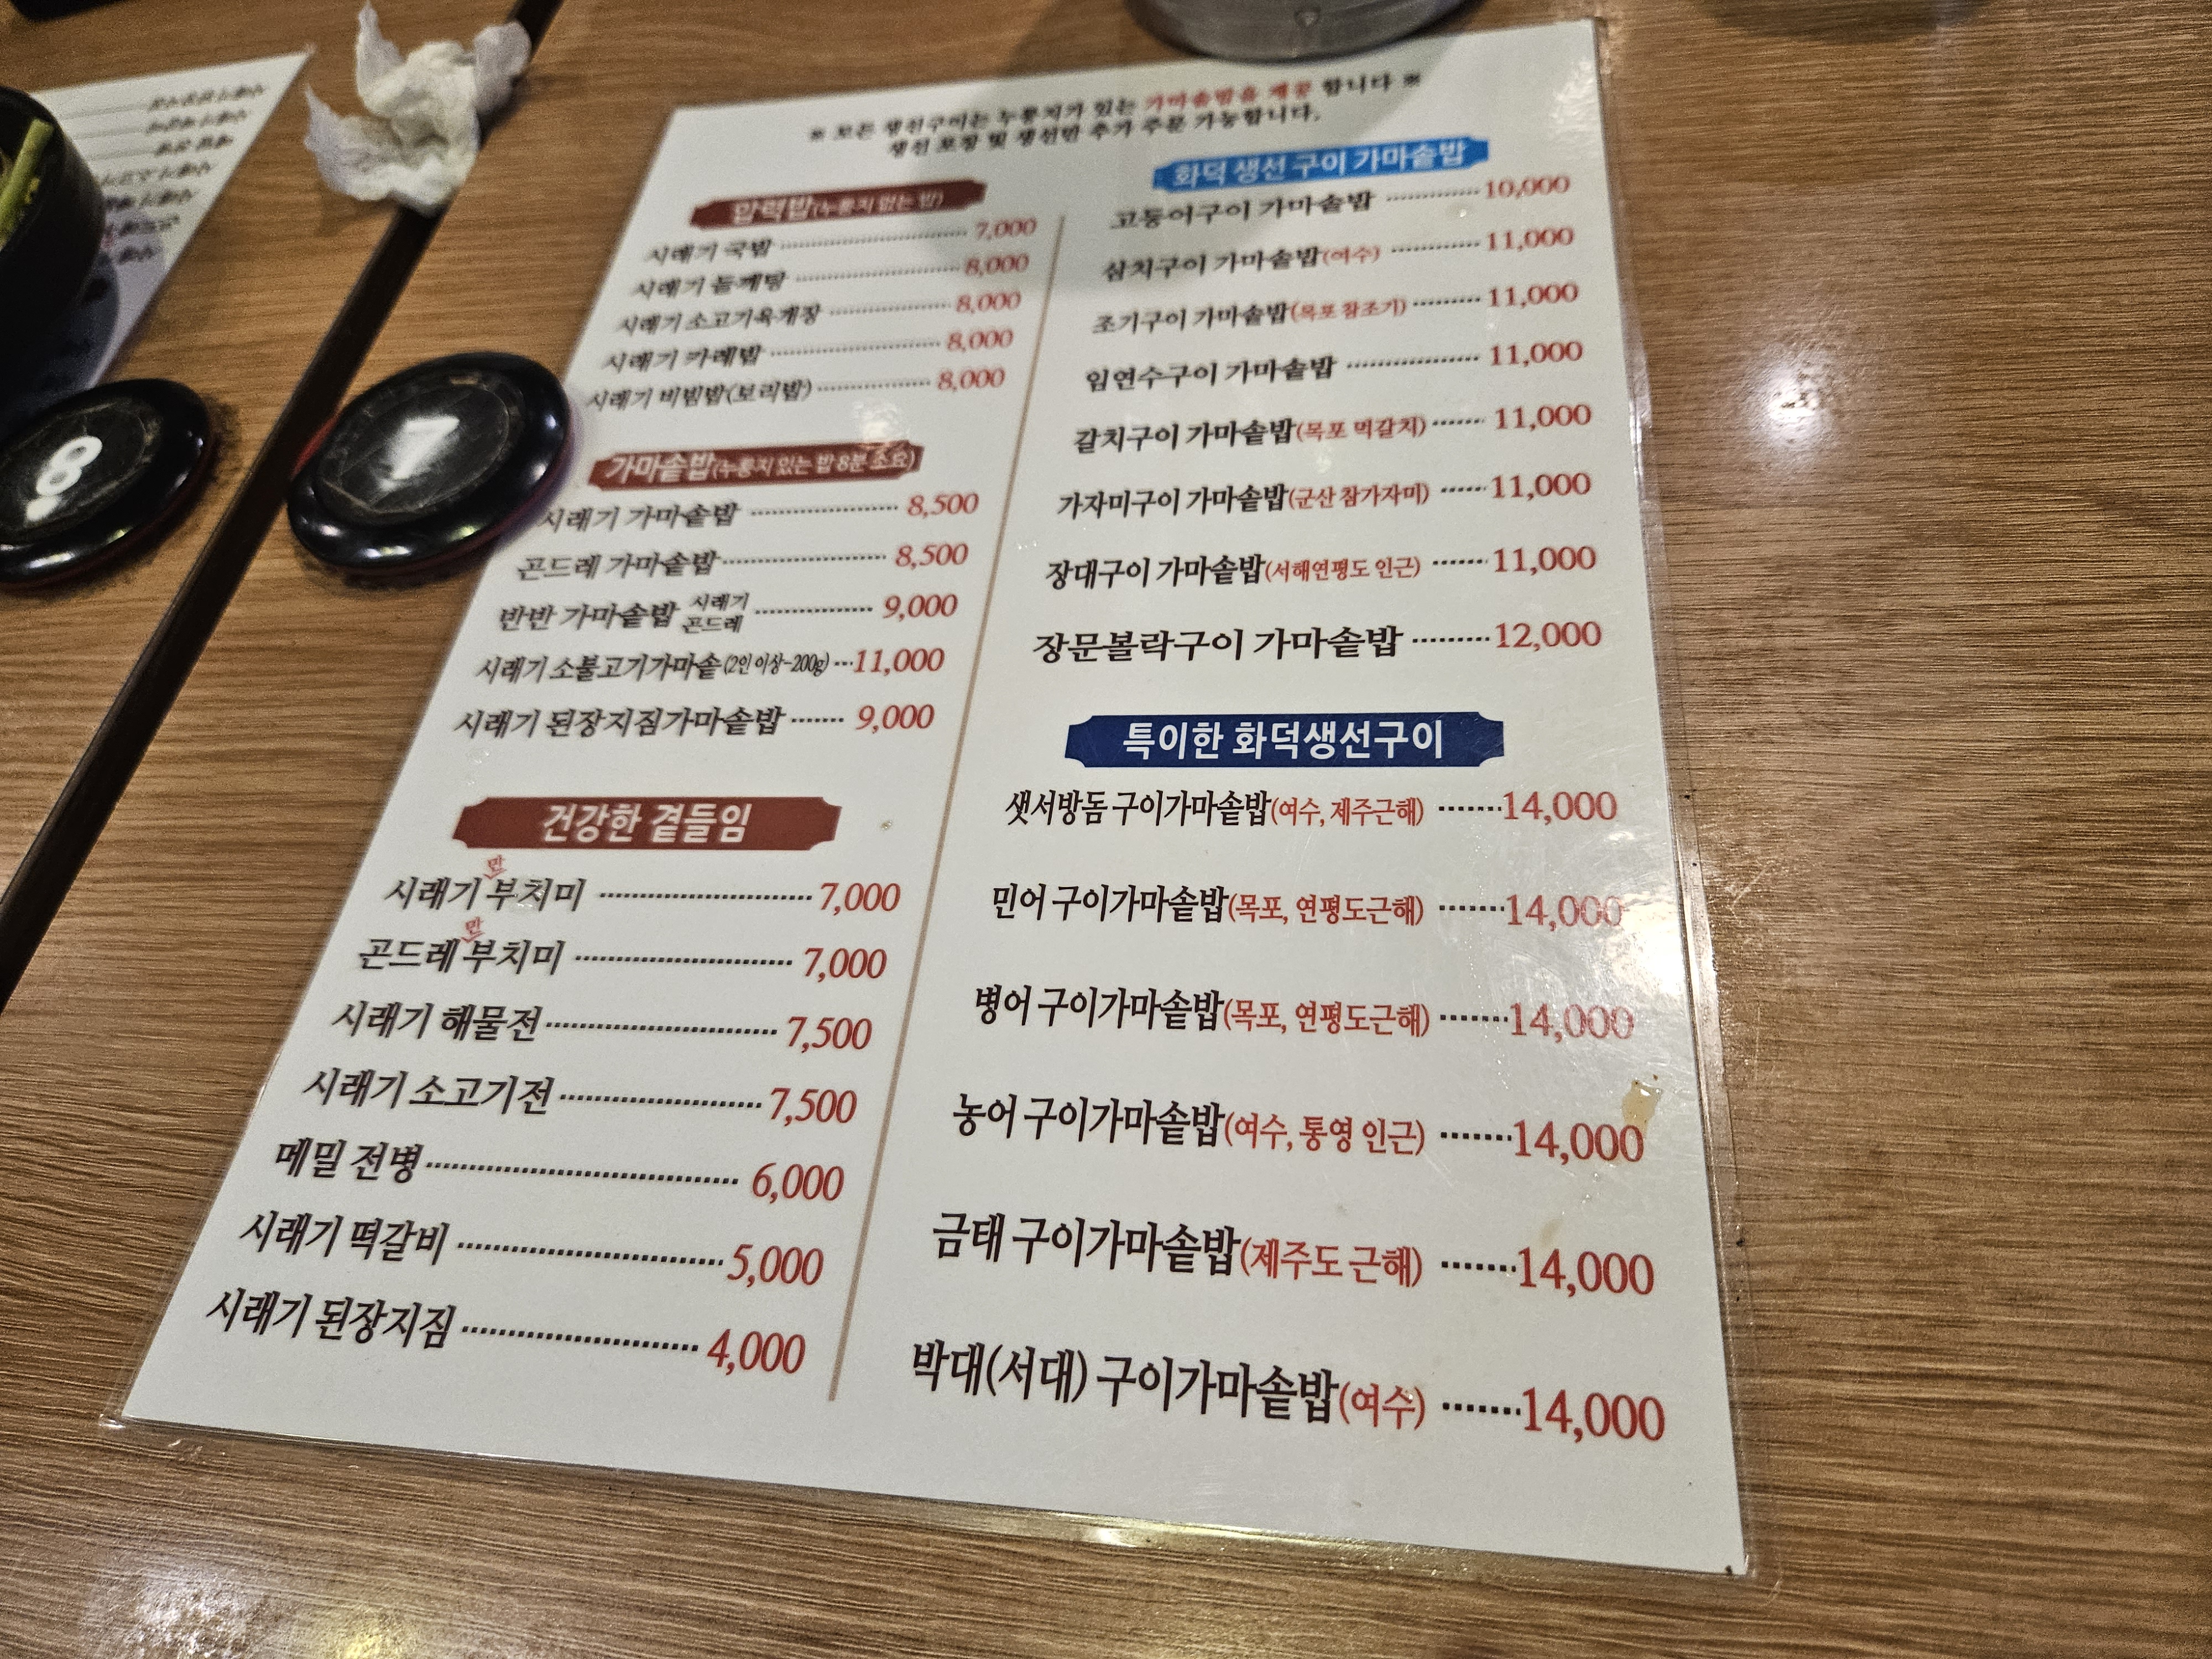 ※ 모든 생선구이는 누룽지가 있는 가마솥밥을 제공 합니다 ※
생선 포장 및 생선만 추가 주문 가능합니다.
압력밥(누룽지 없는 밥)
시래기 국밥 7,000
시래기 들깨탕 8,000
시래기 소고기육개장 8,000
시래기 카레밥 8,000
시래기 비빔밥(보리밥) 8,000
가마솥밥(누룽지 있는 밥 8분 소요)
시래기 가마솥밥 8,500
곤드레 가마솥밥 8,500
반반 가마솥밥 시래기 곤드레 9,000
시래기 소불고기가마솥(2인 이상-200g) 11,000
시래기 된장지짐가마솥밥 9,000
건강한 곁들임
시래기 만 부치미 7,000
곤드레 만 부치미 7,000
시래기 해물전 7,500
시래기 소고기전 7,500
메밀 전병 6,000
시래기 떡갈비 5,000
시래기 된장지짐 4,000
화덕 생선 구이 가마솥밥
고등어구이 가마솥밥 10,000
삼치구이 가마솥밥(여수) 11,000
조기구이 가마솥밥(목포 참조기) 11,000
임연수구이 가마솥밥 11,000
갈치구이 가마솥밥(목포 먹갈치) 11,000
가자미구이 가마솥밥(군산 참가자미) 11,000
장대구이 가마솥밥(서해연평도 인근) 11,000
장문볼락구이 가마솥밥 12,000
특이한 화덕생선구이
샛서방돔 구이가마솥밥(여수, 제주근해) 14,000
민어 구이가마솥밥(목포, 연평도근해) 14,000
병어 구이가마솥밥(목포, 연평도근해) 14,000
농어 구이가마솥밥(여수, 통영 인근) 14,000
금태 구이가마솥밥(제주도 근해) 14,000
박대(서대) 구이가마솥밥(여수) 14,000
8
7